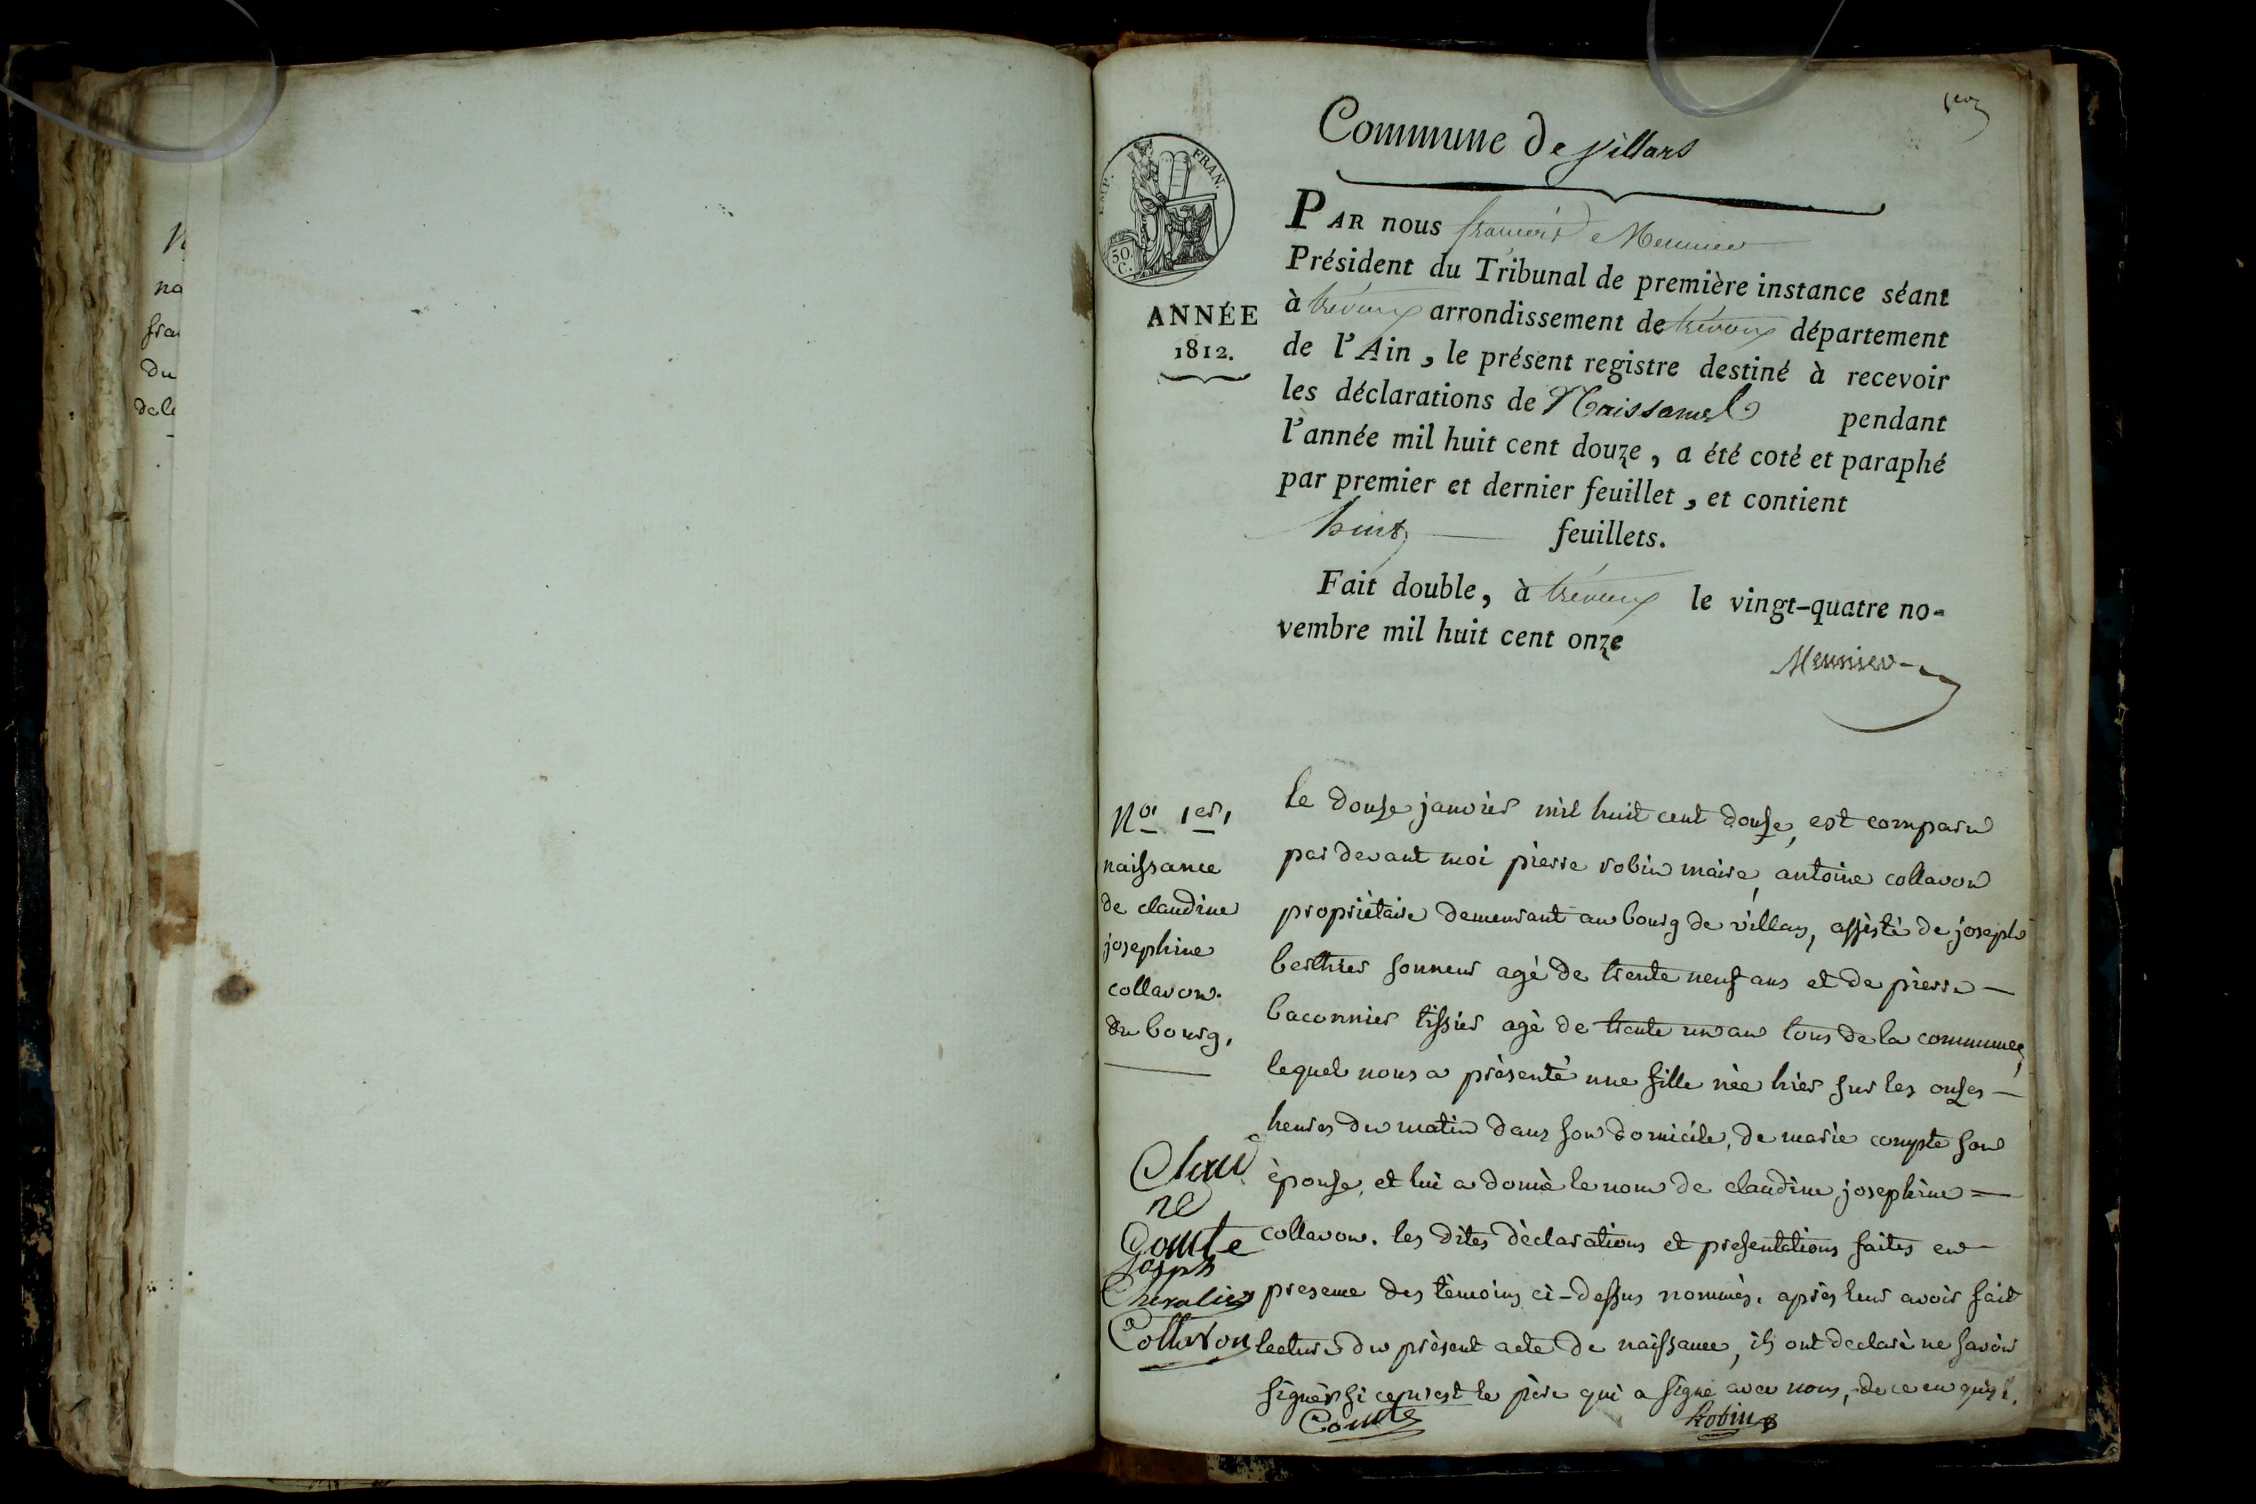 Commune de Villars
EMP. FRAN.
30.
C.
ANNÉE
1812.
PAR nous françois Meunier
Président du Tribunal de première instance séant
à trévoux arrondissement de trévoux département
de l'Ain, le présent registre destiné à recevoir
les déclarations de Naissances pendant
l'année mil huit cent douze, a été coté et paraphé
par premier et dernier feuillet, et contient
huit feuillets.
Fait double, à trévoux le vingt-quatre no-
vembre mil huit cent onze
Meunier
No. 1er.
naissance
de claudine
josephine
collavon.
du bourg.
le douse janvier mil huit cent douse, est comparu
par devant moi pierre robin maire, antoine collavon
propriètaire demeurant au bourg de villars, assisté de joseph
berthier sonneur agé de trente neuf ans et de pierre
baconnier tissier agè de trente un an tous de la commune,
lequel nous a présenté une fille née hier sur les onses
heures du matin dans son domicile, de marie compte son
épouse, et lui a donnè le nom de claudine josephine =
collavon. les dites dèclarations et presentations faites en
presence des tèmoins ci-dessus nommès. après leur avoir fait
lecture du prèsent acte de naissance, ils ont declarè ne savoir
signer si ce n'est le père qui a signé avec nous, de ce enquis.
ne
Comte
joseph
Chevalier
Collavon
Comte
Robin
N
na
fra
du